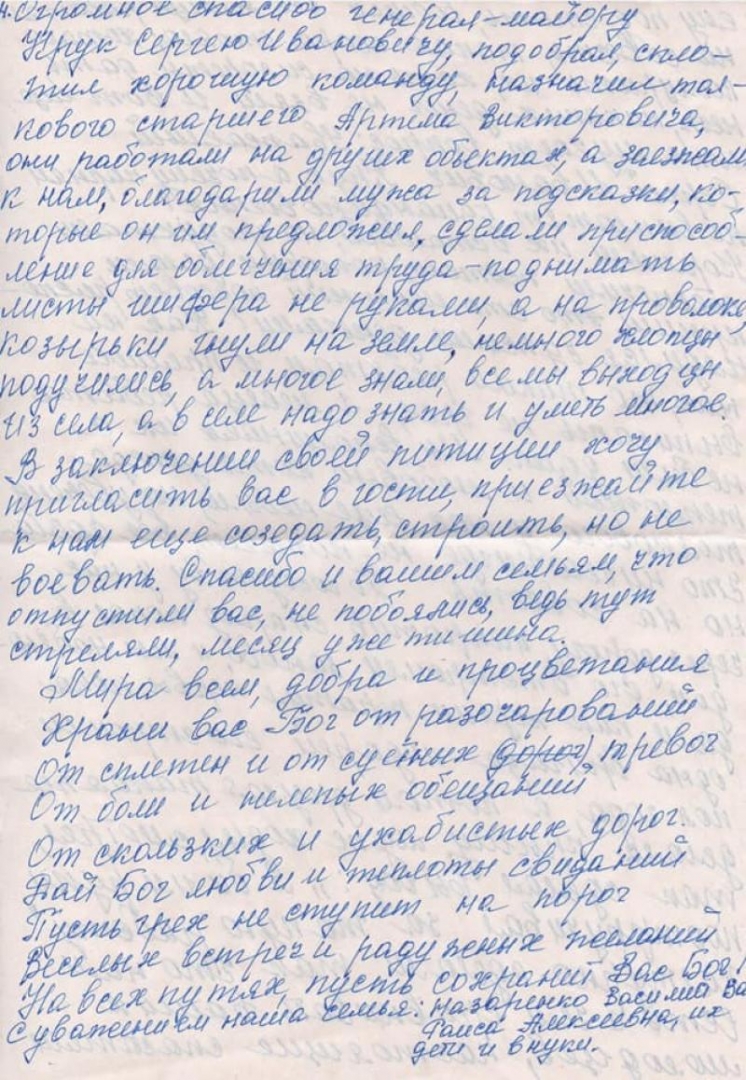 4. Огромное спасибо генерал-майору
Крук Сергею Ивановичу, подобрал, спло-
тил хорошую команду, назначил тол-
кового старшего Артёма Викторовича,
они работали на других объектах, а заезжали
к нам, благодарили мужа за подсказки, ко-
торые он им предложил, сделали приспособ-
ление для облегчения труда-поднимать
листы шифера не руками, а на проволоке,
козырьки гнули на земле, немного хлопцы
подучились, а многое знали, все мы выходцы
из села, а в селе надо знать и уметь многое.
В заключении своей питиции хочу
пригласить вас в гости, приезжайте
к нам еще созедать, строить, но не
воевать. Спасибо и вашим семьям, что
отпустили вас, не побоялись, ведь тут
стреляли, месяц уже тишина.
Мира всем, добра и процветания
Храни вас Бог от разочарований
От сплетен и от суетных (дорог) тревог
От боли и нелепых обещаний
От скользких и ухабистых дорог.
Дай Бог любви и теплоты свиданий
Пусть грех не ступит на порог
Веселых встреч и радужных желаний
На всех путях, пусть сохранит Вас Бог!
С уважением наша семья: Назаренко Василий Ва
Раиса Алексеевна, их
дети и внуки.